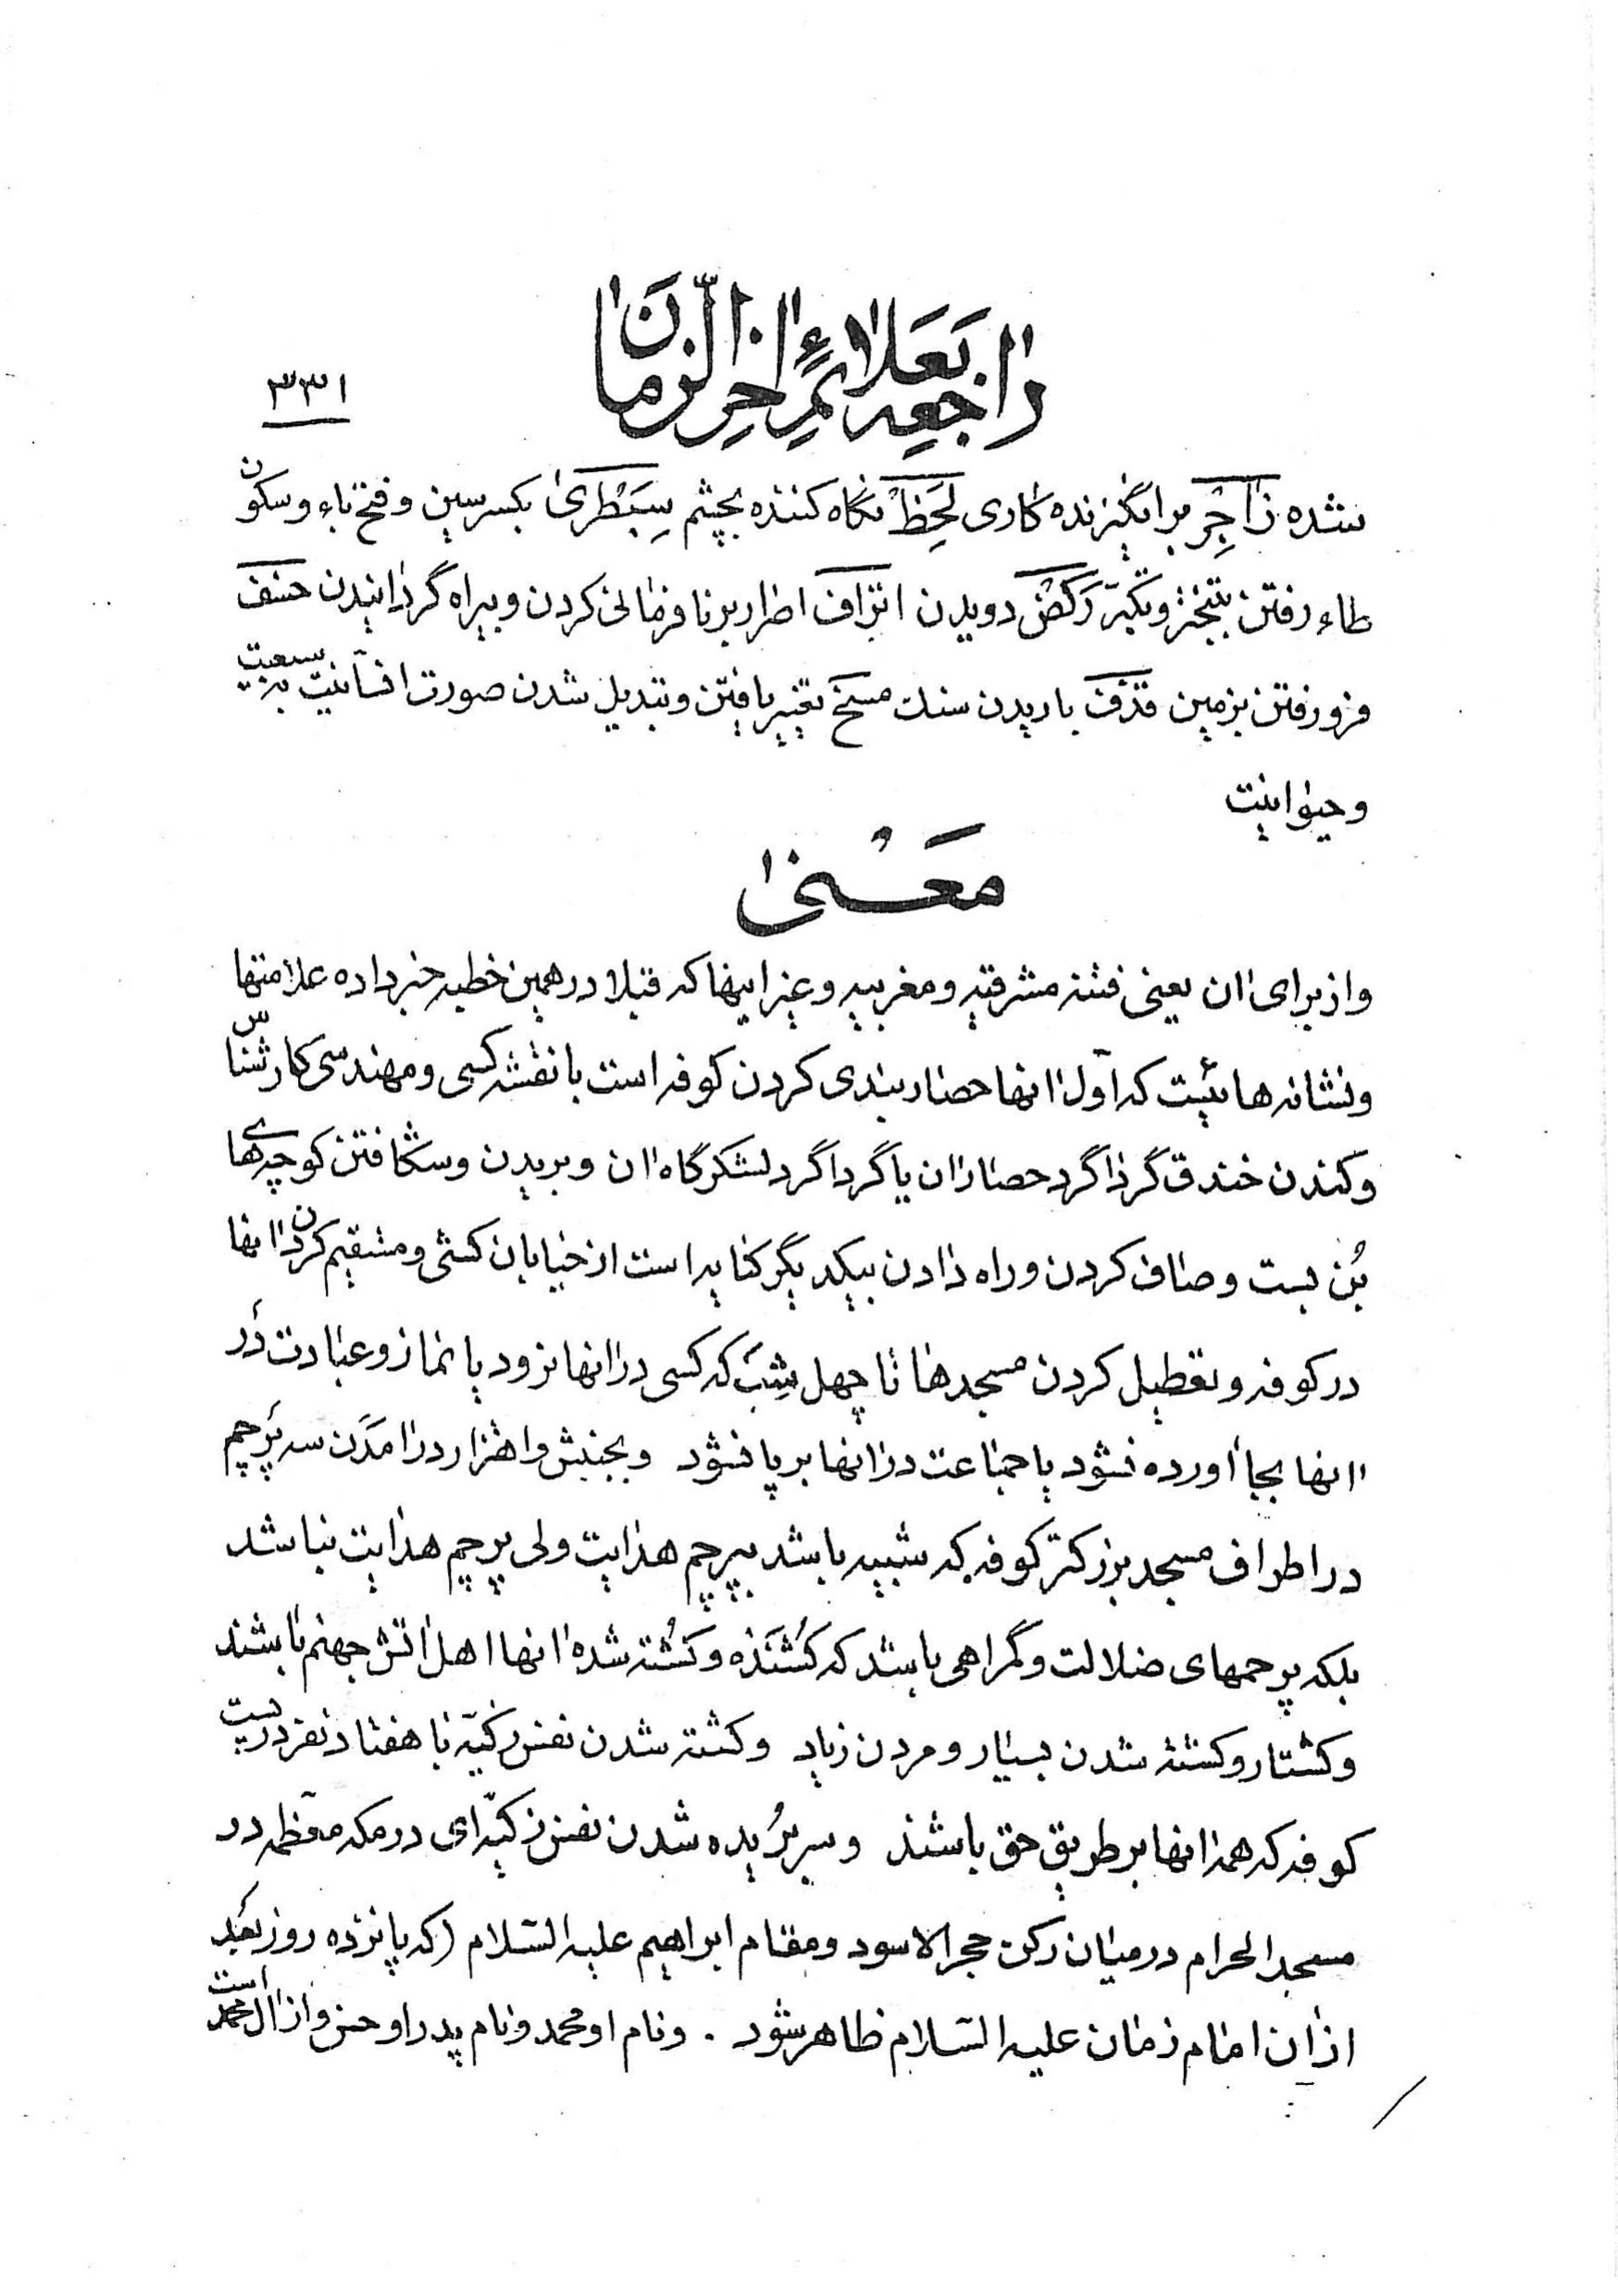 راجعه بعلائم اخر الزمان
۳۳۱
شده زاجِر برانگیزنده کاری لَحِظْ نگاه کننده بچشم سِبَطْریٰ بکسر سین و فتح باء و سکون
طاء رفتن بتبختر و تکبّر رَکضْ دویدن اتراف اصرار بر نافرمانی کردن و بیراه گردانیدن خسف
فرو رفتن بزمین قذف باریدن سنک مسخ تغییر یافتن و تبدیل شدن صورت انسانیت به سبعیت
و حیوانیت
مَعْنیٰ
و از برای ان یعنی فتنه مشرقیه و مغربیه و غیر اینها که قبلا در همین خطبه خبر داده علامتها
و نشانه هائیست که اول انها حصار بندی کردن کوفه است با نقشه کسی و مهندسی کارشناس
و کندن خندق گرداگرد حصار ان یا گرداگرد لشکرگاه ان و بریدن و شکافتن کوچه های
بُن بست و صاف کردن و راه دادن بیکدیگر کنایه است از خیابان کشی و مستقیم کردن انها
در کوفه و تعطیل کردن مسجدها تا چهل شب که کسی در انها نرود یا نماز و عبادت در
انها بجا اورده نشود یا جماعت در انها بر پا نشود و بجنبش و اهتزار درامدن سه پرچم
در اطراف مسجد بزرکتر کوفه که شبیه باشد بپرچم هدایت ولی پرچم هدایت نباشد
بلکه پرچمهای ضلالت و گمراهی باشد که کُشَنده و کُشته شده انها اهل اتش جهنم باشند
و کشتار و کشته شدن بسیار و مردن زیاد و کشته شدن نفس زکیّه با هفتاد نفر در پشت
کوفه که همه انها بر طریق حق باشند و سر بُریده شدن نفس زکیّه ای در مکه معظمه در
مسجد الحرام در میان رکن حجر الاسود و مقام ابراهیم علیه السّلام (که پانزده روز بعد
از ان امام زمان علیه السّلام ظاهر شود . و نام او محمد و نام پدر او حسن و از ال محمد است